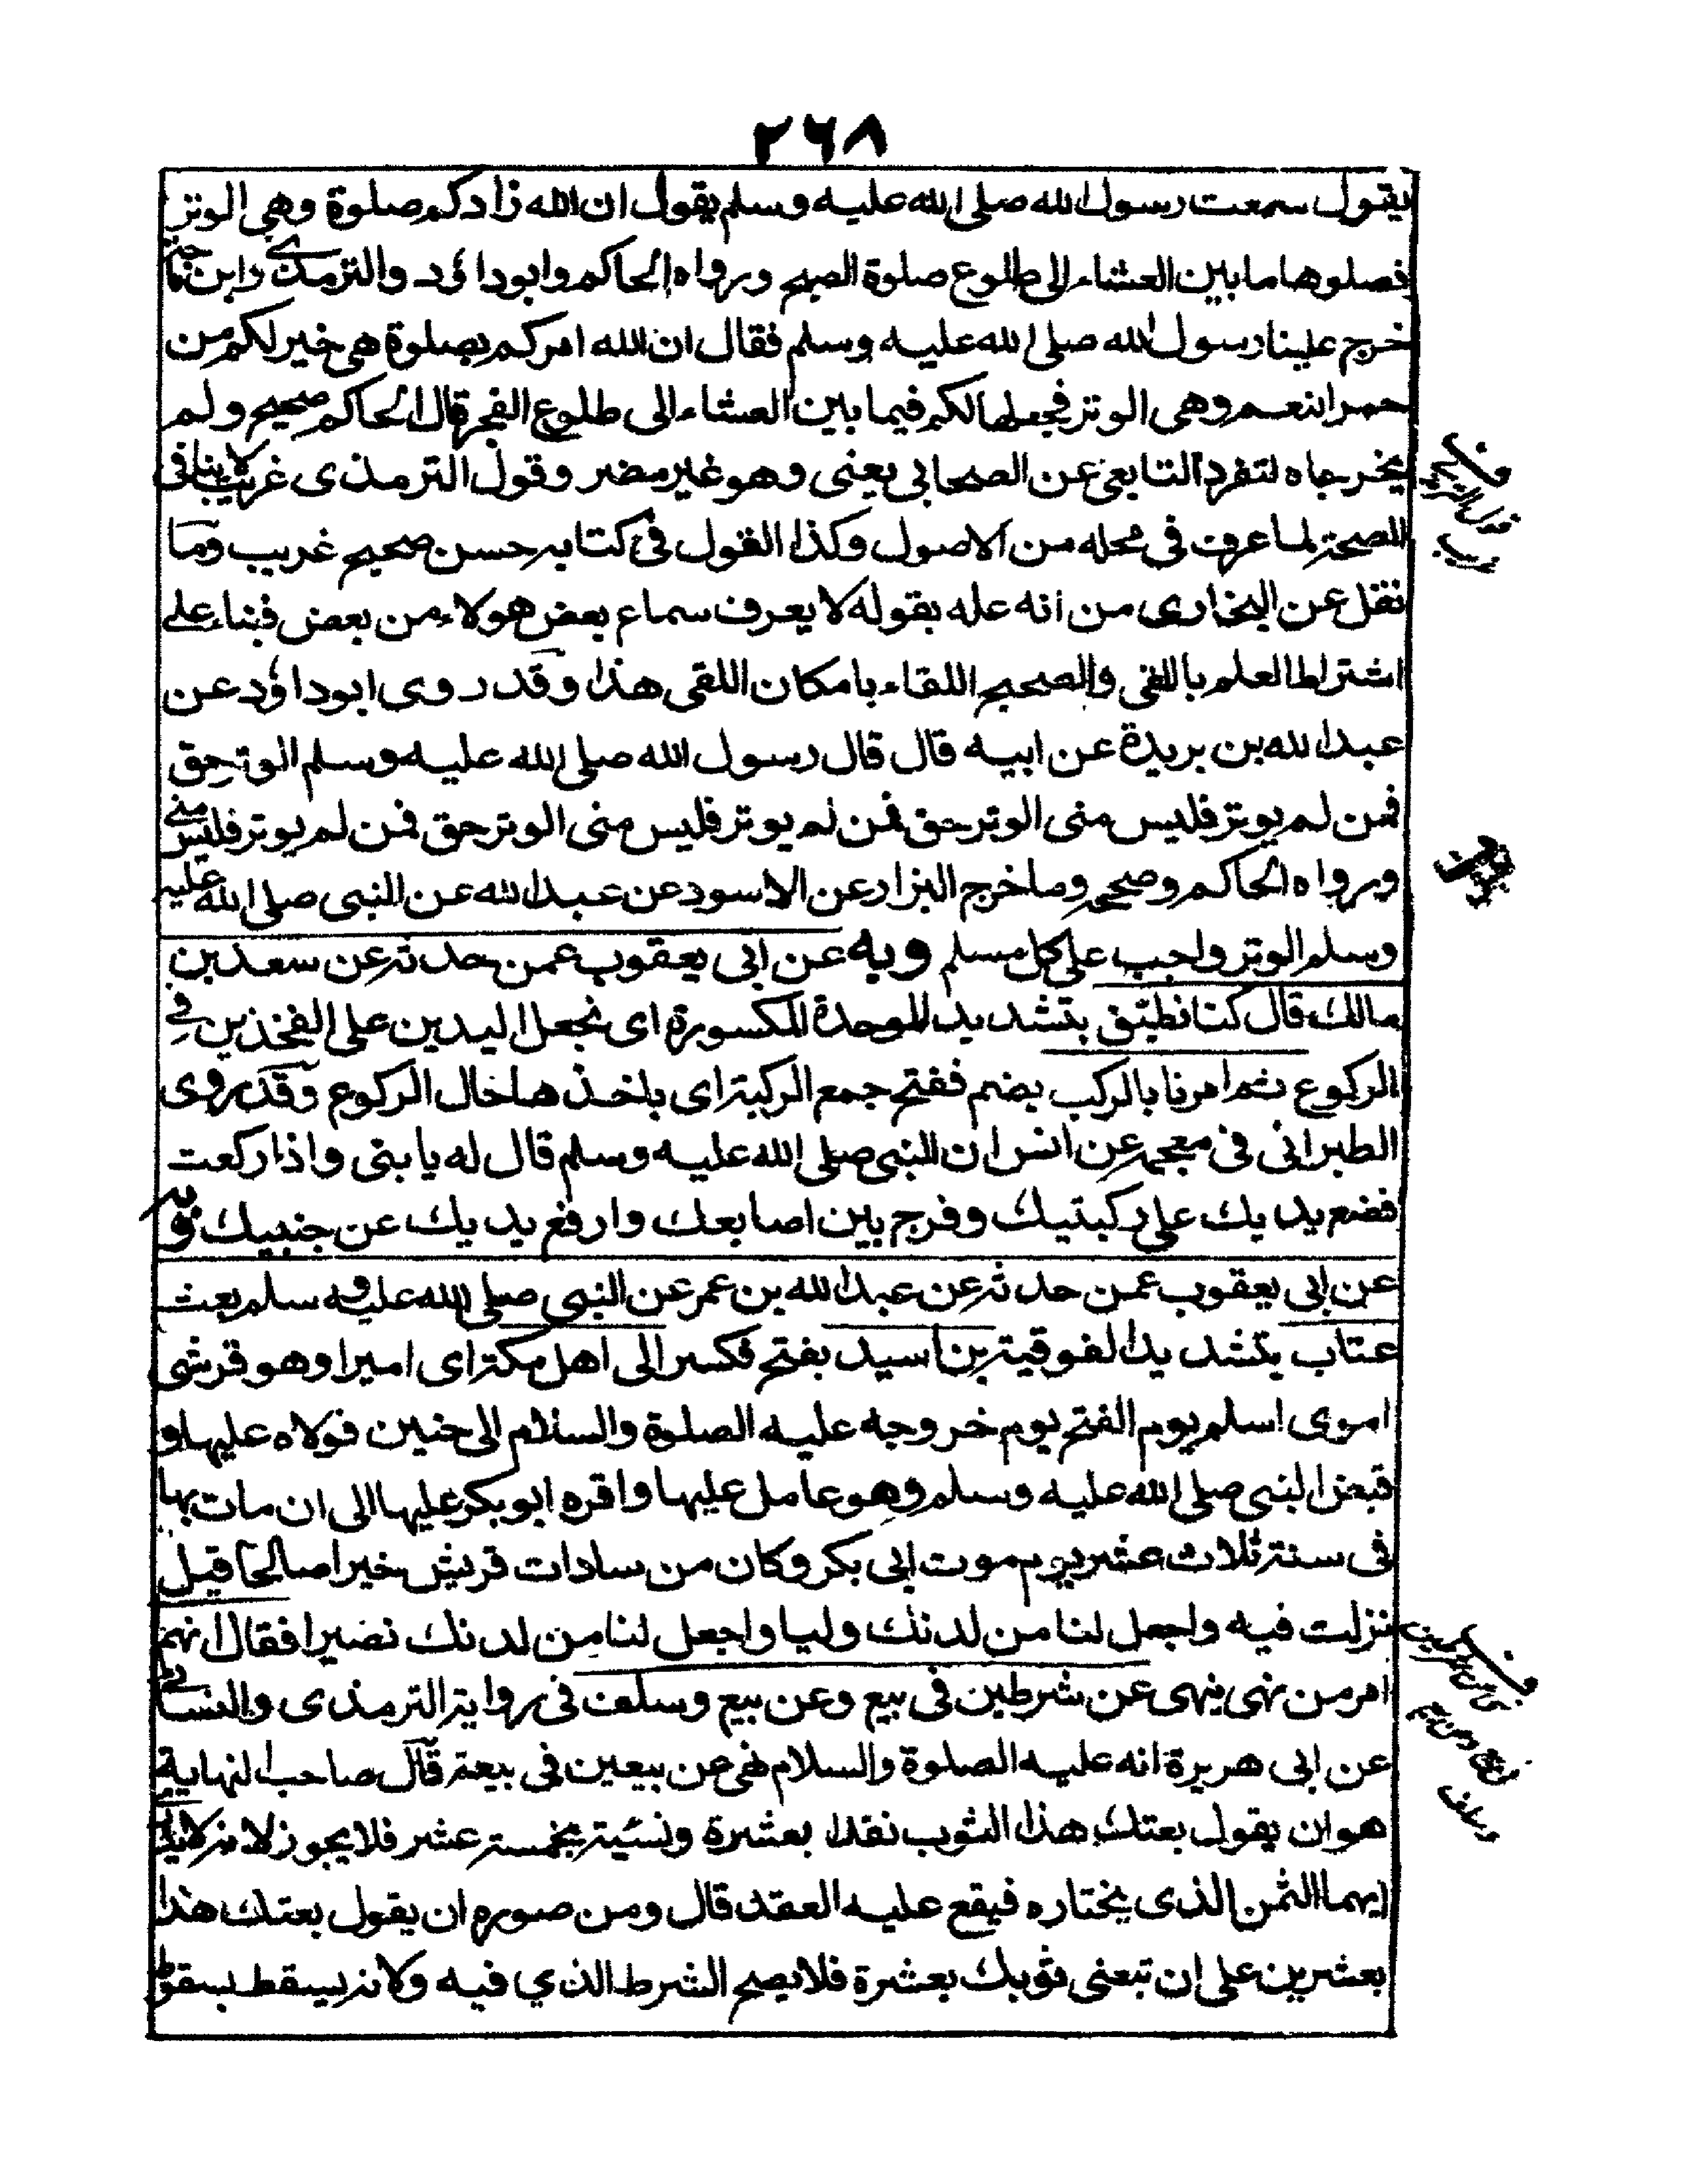 ٢٦٨
يقول سمعت رسول الله صلى الله عليه وسلم يقول ان الله زادكم صلوة وهى الوتر
فصلوها ما بين العشاء الى طلوع صلوة الصبح ورواه الحاكم وابوداؤد والترمذى وابن ماجة
خرج علينا رسول الله صلى الله عليه وسلم فقال ان الله امركم بصلوة هى خير لكم من
حمر النعم وهى الوتر فجعلها لكم فيما بين العشاء الى طلوع الفجر قال الحاكم صحيح ولم
يخرجاه لتفرد التابعى عن الصحابى يعنى وهو غير مضر وقول الترمذى غريب لا ينافى
الصحة لما عرف فى محله من الاصول وكذا القول فى كتابه حسن صحيح غريب وما
نقل عن البخارى من انه عله بقوله لا يعرف سماع بعض هولاء من بعض فبناء على
اشتراط العلم باللقى والصحيح اللقاء بامكان اللقى هذا وقد روى ابوداؤد عن
عبد الله بن بريدة عن ابيه قال قال رسول الله صلى الله عليه وسلم الوتر حق
فمن لم يوتر فليس منى الوتر حق فمن لم يوتر فليس منى الوتر حق فمن لم يوتر فليس منى
ورواه الحاكم وصححه وما خرج البزار عن الاسود عن عبد الله عن النبى صلى الله عليه
وسلم الوتر واجب على كل مسلم وبه عن ابى يعقوب عمن حدثه عن سعد بن
مالك قال كنا نطبق بتشديد الموحدة المكسورة اى نجعل اليدين على الفخذين فى
الركوع ثم امرنا بالركب بضم ففتح جمع الركبة اى باخذها حال الركوع وقد روى
الطبرانى فى معجمه عن انس ان النبى صلى الله عليه وسلم قال له يا بنى واذا ركعت
فضع يديك على ركبتيك وفرج بين اصابعك وارفع يديك عن جنبيك وبه
عن ابى يعقوب عمن حدثه عن عبد الله بن عمر عن النبى صلى الله عليه وسلم بعث
عتاب بتشديد الفوقية بن اسيد بفتح فكسر الى اهل مكة اى اميرا وهو قرشى
اموى اسلم يوم الفتح يوم خروجه عليه الصلوة والسلام الى حنين فولاه عليها و
قبض النبى صلى الله عليه وسلم وهو عامل عليها واقره ابوبكر عليها الى ان مات بها
فى سنة ثلاث عشر يوم موت ابى بكر وكان من سادات قريش خيرا صالحا قيل
نزلت فيه واجعل لنا من لدنك وليا واجعل لنا من لدنك نصيرا فقال انهم
امر من نهى ينهى عن شرطين فى بيع وعن بيع وسلف فى رواية الترمذى والنسائى
عن ابى هريرة انه عليه الصلوة والسلام نهى عن بيعين فى بيعة قال صاحب النهاية
هو ان يقول بعتك هذا الثوب نقدا بعشرة ونسيئة بخمسة عشر فلا يجوز لانه لا يدرى
ايهما الثمن الذى يختاره فيقع عليه العقد قال ومن صوره ان يقول بعتك هذا
بعشرين على ان تبعنى ثوبك بعشرة فلا يصح الشرط الذي فيه ولانه يسقط بسقوط